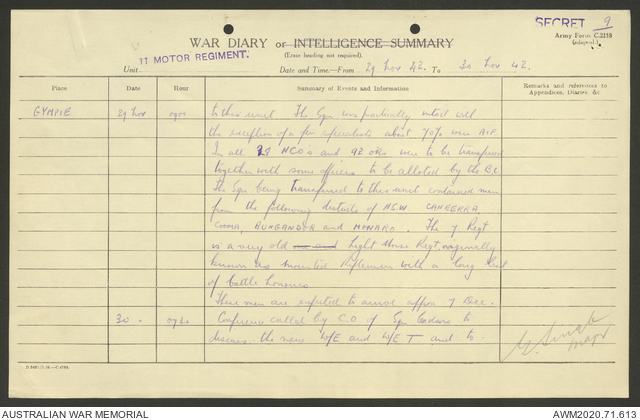 SECRET 9
Army Form C.2118
(adapted.)
WAR DIARY or INTELLIGENCE SUMMARY
(Erase heading not required).
11 MOTOR REGIMENT.
Unit
Date and Time—From 29 Nov 42 To 30 Nov 42.
Place Date Hour Summary of Events and Information Remarks and references to
Appendices, Diaries, &c
GYMPIE 29 Nov to this unit The Sqn was practically intact with
the exception of a few specialists about 70% were AIF
In all 28 NCO's and 92 ORs were to be transferred
together with some officers to be allotted by the B.C.
The Sqn being transferred to this unit contained men
from the following districts of NSW CANBERRA
COOMA, BUNGANDOR and MONARO. The 7 Regt
is a very old Light Horse Regt originally
known as Mounted Riflemen with a long list
of battle honours
These men are expected to arrive approx 7 Dec.
30 . Conference called by C.O of Sqn Leaders to
discuss the new W/E and W/E T and to
Major
AUSTRALIAN WAR MEMORIAL AWM2020.71.613